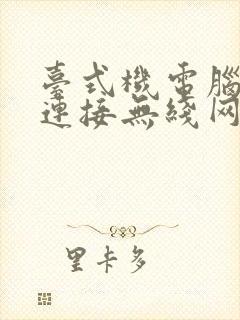 臺式機電腦
連接無綫网
里卡多